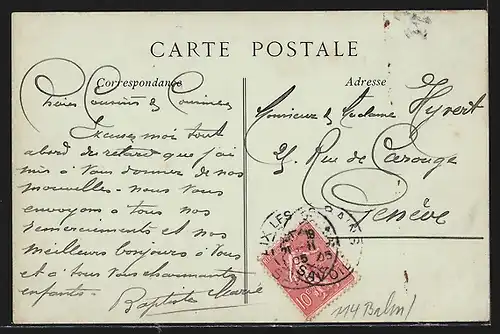 CARTE POSTALE
Correspondance
Adresse
Chers Cousins & Cousines
Excusez moi tout
abord du retard que j'ai
mis à vous donner de nos
nouvelles - nous vous
envoyons à tous nos
remerciements et nos
meilleurs bonjours à vous
et à tous vous charmants
enfants.
Baptiste Marie
Monsieur & Madame Hyvert
25 Rue de Carouge
Genève
AIX LES BAINS
SAVOIE
10
114 Balm/